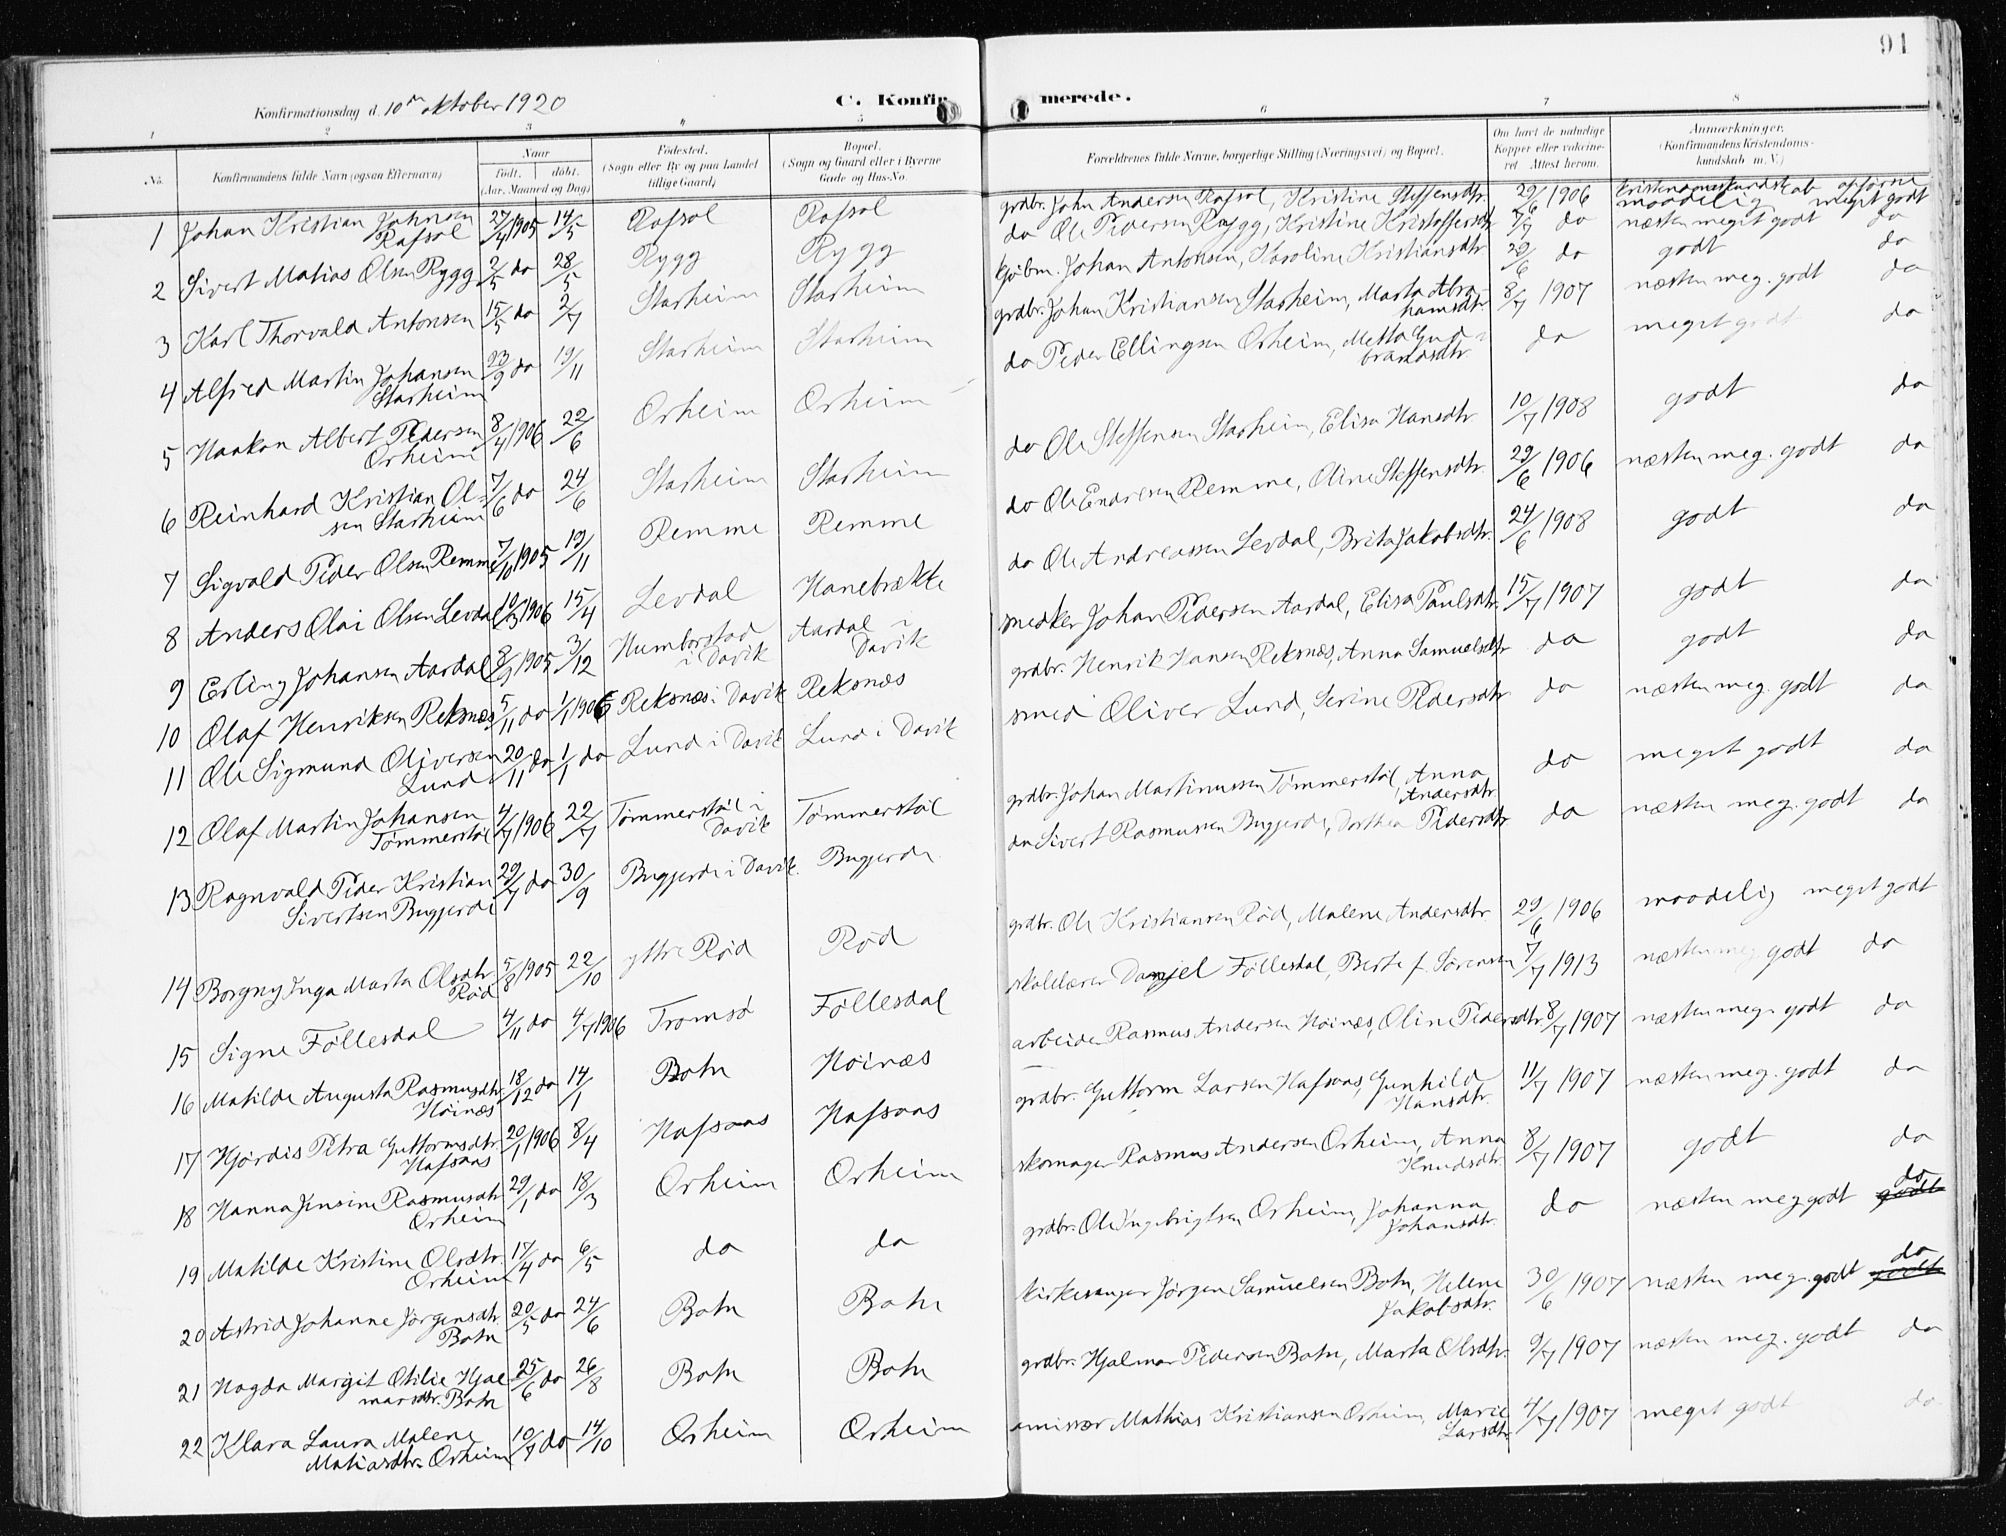 91
Konfirmationsdag d. 10de oktober 1920
C. Konfirmerede.
1 2 3 4 5 6 7 8
No. Konfirmandens fulde Navn (ogsaa Efternavn) Naar født. døbt. (Aar, Maaned og Dag) Fødested. (Sogn eller By og paa Landet tillige Gaard) Bopæl. (Sogn og Gaard eller i Byerne Gade og Hus-No. Forældrenes fulde Navne, borgerlige Stilling (Næringsvei) og Bopæl. Om havt de naturlige Kopper eller vaccineret. Attest herom. Anmærkninger. (Konfirmandens Kristendomskundskab m. V.)
kristendomskundskab opførsel
1 Johan Kristian Johnsen Rafsøl 27/4 1905 14/5 Rafsøl Rafsøl grdbr. John Andersen Rafsøl, Kristine Steffensdtr. 29/6 1906 maadelig meget godt
2 Sivert Matias Olsen Rygg 2/5 do 28/5 Rygg Rygg do Ole Pedersen Rygg, Kristine Kristoffersdtr. 7/7 do næsten meget godt do
3 Karl Thorvald Antonsen 15/5 do 2/7 Starheim Starheim kjøbm. Johan Antonsen, Karoline Kristiansdtr. 29/6 do godt do
4 Alfred Martin Johansen Starheim 23/9 do 19/11 Starheim Starheim grdbr. Johan Kristiansen Starheim, Marta Abrahamsdtr. 8/7 1907 næsten meg. godt do
5 Haakon Albert Pedersen Orheim 8/4 1906 22/6 Orheim Orheim do Peder Ellingsen Orheim, Metta Gudbrandsdtr. do meget godt do
6 Reinhard Kristian Olsen Starheim 7/6 do 24/6 Starheim Starheim do Ole Steffensen Starheim, Elisa Hansdtr. 10/7 1908 godt do
7 Sigvald Peder Olsen Remme 7/10 1905 19/11 Remme Remme do Ole Endresen Remme, Oline Steffensdtr. 29/6 1906 næsten meg. godt do
8 Anders Olai Olsen Levdal 10/3 1906 15/4 Levdal Hanebrække do Ole Andreassen Levdal, Brita Jakobsdtr. 24/6 1908 godt do
9 Erling Johansen Aardal 1905 3/12 Humborstad i Davik Aardal i Davik snedker Johan Pedersen Aardal, Elisa Paulsdtr. 15/7 1907 godt do
10 Olaf Henriksen Reksnæs 5/11 do 1/1 1906 Reksnæs i Davik Reksnæs grdbr. Henrik Hansen Reksnæs, Anna Samuelsdtr do godt do
11 Ole Sigmund Oliversen Lund 20/11 do 1/1 do Lund i Davik Lund i Davik smed Oliver Lund, Serine Pedersdtr do næsten meg. godt do
12 Olaf Martin Johansen Tømmerstøl 4/7 1906 22/7 Tømmerstøl i Davik Tømmerstøl grdbr. Johan Martinussen Tømmerstøl, Anna Andersdtr. do meget godt do
13 Ragnvald Peder Kristian Sivertsen Bugjerde 29/7 do 30/9 Bugjerde i Davik Bugjerde do Sivert Rasmussen Bugjerde, Dorthea Pedersdtr do næsten meg. godt do
14 Borgny Inga Marta Olsdtr. Rød 5/8 1905 22/10 yttre Rød Rød grdbr. Ole Kristiansen Rød, Malene Andersdtr. 29/6 1906 maadelig meget godt
15 Signe Føllesdal 4/11 do 4/7 1906 Tromsø Føllesdal skolelærer Daniel Føllesdal, Berte f. Sørensen 7/7 1913 næsten meg godt do
16 Matilde Augusta Rasmusdtr Høinæs 18/12 do 14/1 Botn Høinæs arbeider Rasmus Andersen Høinæs, Oline Pedersdtr. 8/7 1907 næsten meg. godt do
17 Hjørdis Petra Guttormsdtr Hafsaas 20/1 1906 8/4 Hafsaas Hafsaas grdbr. Guttorm Larsen Hafsaas, Gunhild Hansdtr. 11/7 1907 næsten meg. godt do
18 Hanna Jensine Rasmusdtr Orheim 29/1 do 18/3 Orheim Orheim skomager Rasmus Andersen Orheim, Anna Knudsdtr. 8/7 1907 godt do
19 Matilde Kristine Olsdtr. Orheim 17/4 do 6/5 do do grdbr. Ole Ingebrigtsen Orheim, Johanna Johansdtr. do næsten meg godt godt do
20 Astrid Johanne Jørgensdtr. Botn 20/5 do 24/6 Botn Botn kirkesanger Jørgen Samuelsen Botn, Helene Jakobsdtr. 30/6 1907 næsten meg. godt godt do
21 Magda Margit Otilie Hjalmarsdtr. Botn 25/6 do 26/8 Botn Botn grdbr. Hjalmar Pedersen Botn, Marta Olsdtr. 9/7 1907 næsten meg. godt do
22 Klara Laura Malene Matiasdtr. Orheim 10/7 do 14/10 Orheim Orheim emissær Mathias Kristiansen Orheim, Marie Larsdtr. 4/7 1907 meget godt do